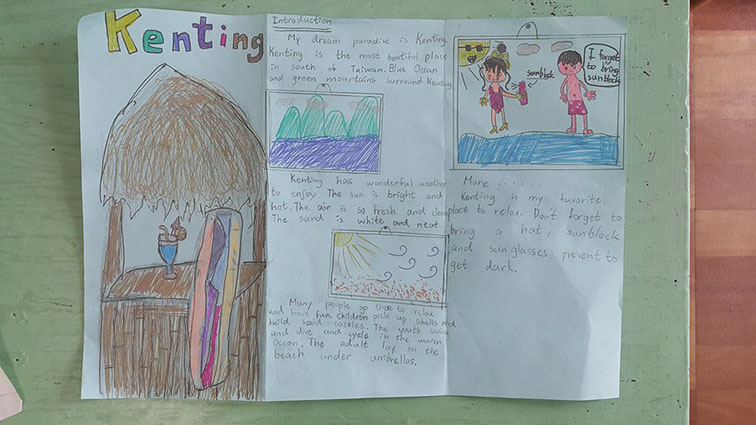 Kenting
Introduction
My dream paradise is Kenting.
Kenting is the most beatiful place
in south of Taiwan. Blue Ocean
and green mountains surround Kenting.
Kenting has wonderful weather
to enjoy. The sun is bright and
hot. The air is so fresh and clean
The sand is white and neat.
Many people go there to relax
and have fun. Children pick up shells and
build sand castles. The youth swim
and dive and cycle in the warm
ocean. The adult lay on the
beach under umbrellas.
sunblock
I forget
to bring
sunblock
More ......
Kenting is my favorite
place to relax. Don't forget to
bring a hat, sunblock
and sunglasses prevent to
get dark.